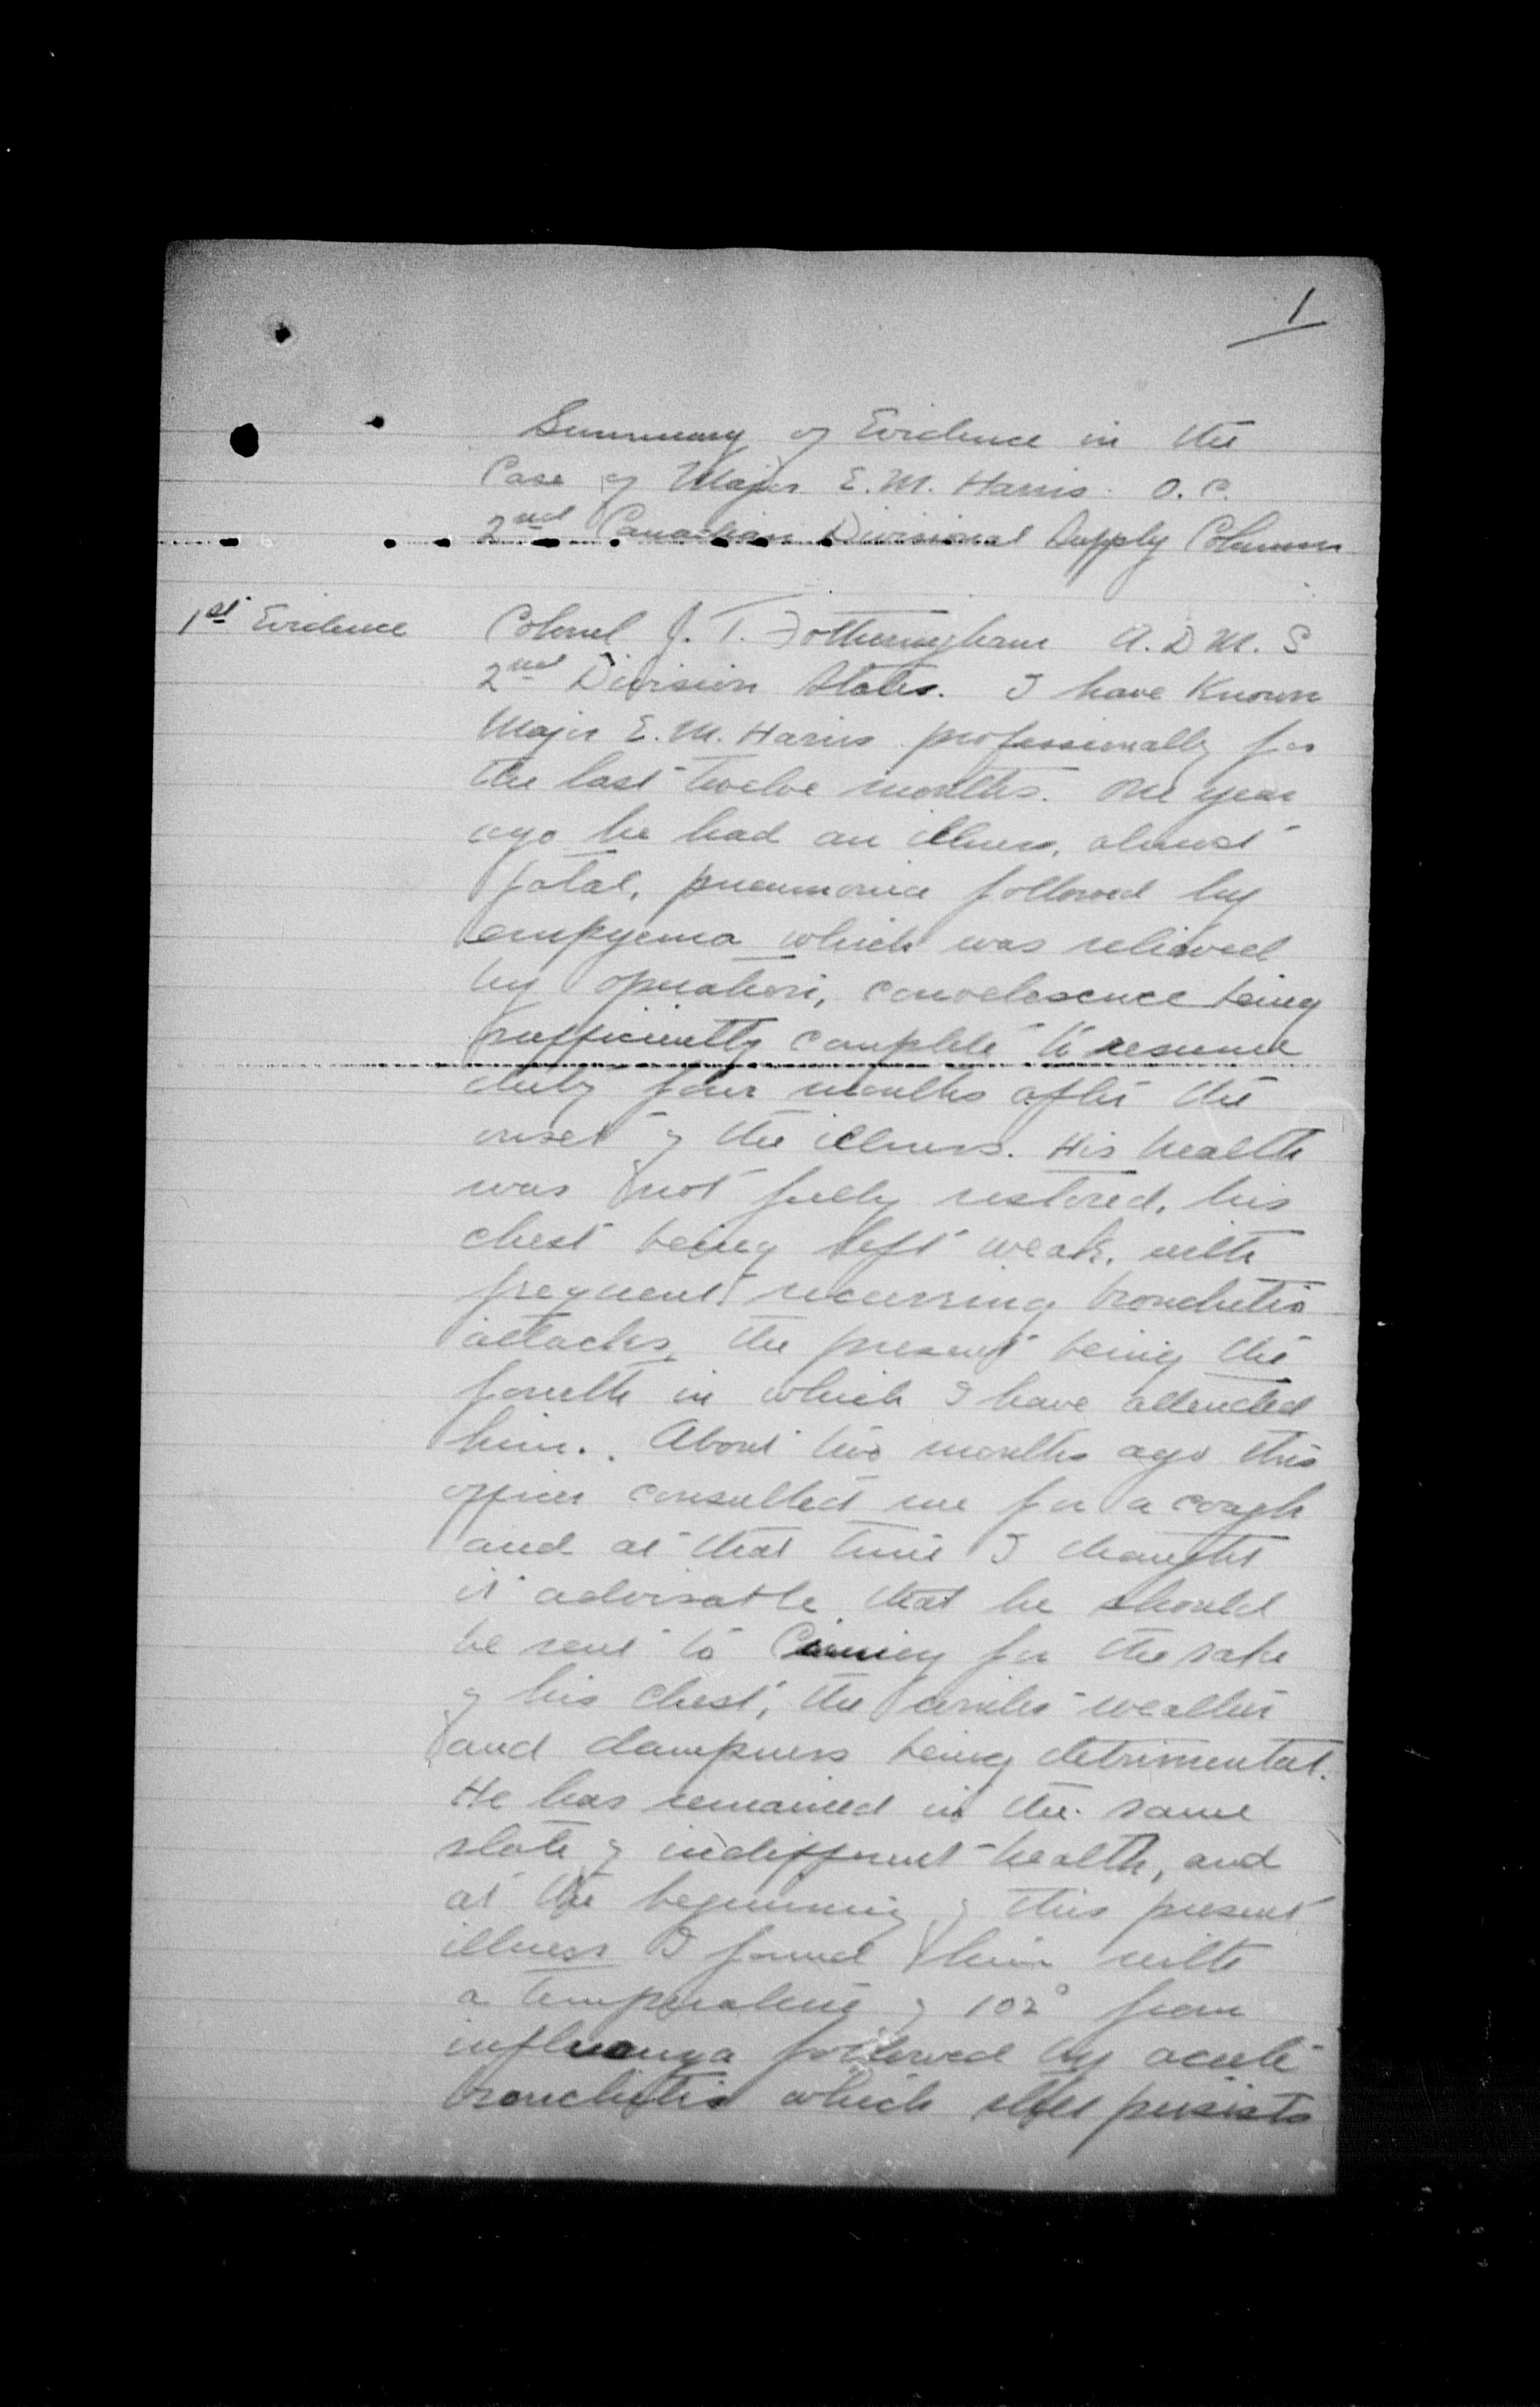 1
Summary of Evidence in the
Case of Major E. M. Harris. O. C.
2nd Canadian Divisional Supply Column
1st Evidence
Colonel J. T. Fotheringham A. D M. S
2nd Division States. I have Known
Major E. M. Harris professionally for
the last twelve months. One year
ago he had an illness, almost
fatal, pneumonia followed by
empyema which was relieved
by operation, convelesence being
sufficiently complete to resume
duty four months after the
onset of the illness. His health
was not fully restored, his
chest being left weak, with
frequent recurring bronchitis
attacks, the present being the
fourth in which I have attended
him. About two months ago this
officer consulted me for a cough
and at that time I thought
it advisable that he should
be sent to for the sake
of his chest, the winter weather
and dampness being detrimental.
He has remained in the same
state of indifferent health, and
at the beginning of this present
illness I found him with
a temperature of 102° from
influenza followed by acute
bronchitis which still persists